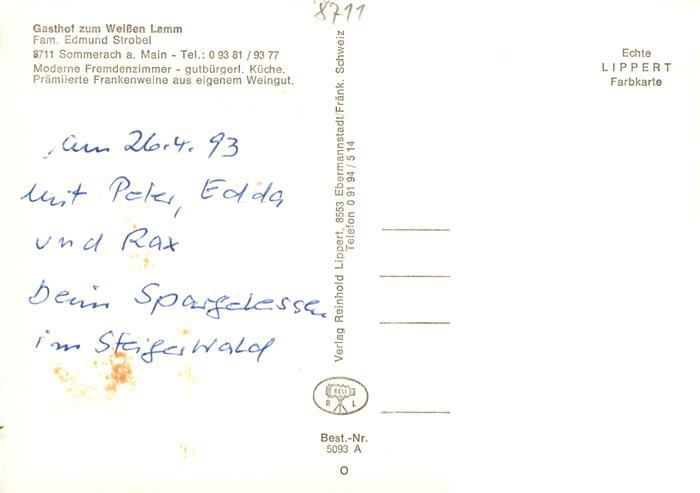 8711
Gasthof zum Weißen Lamm
Fam. Edmund Strobel
8711 Sommerach a. Main - Tel.: 0 93 81 / 93 77
Moderne Fremdenzimmer - gutbürgerl. Küche.
Prämiierte Frankenweine aus eigenem Weingut.
Am 26.4.93
Mit Peter, Edda
und Rax
beim Spargelessen
im Steigerwald
Verlag Reinhold Lippert, 8553 Ebermannstadt/Fränk. Schweiz
Telefon 0 91 94 / 5 14
RELI
R L
Best.-Nr.
5093 A
O
Echte
LIPPERT
Farbkarte